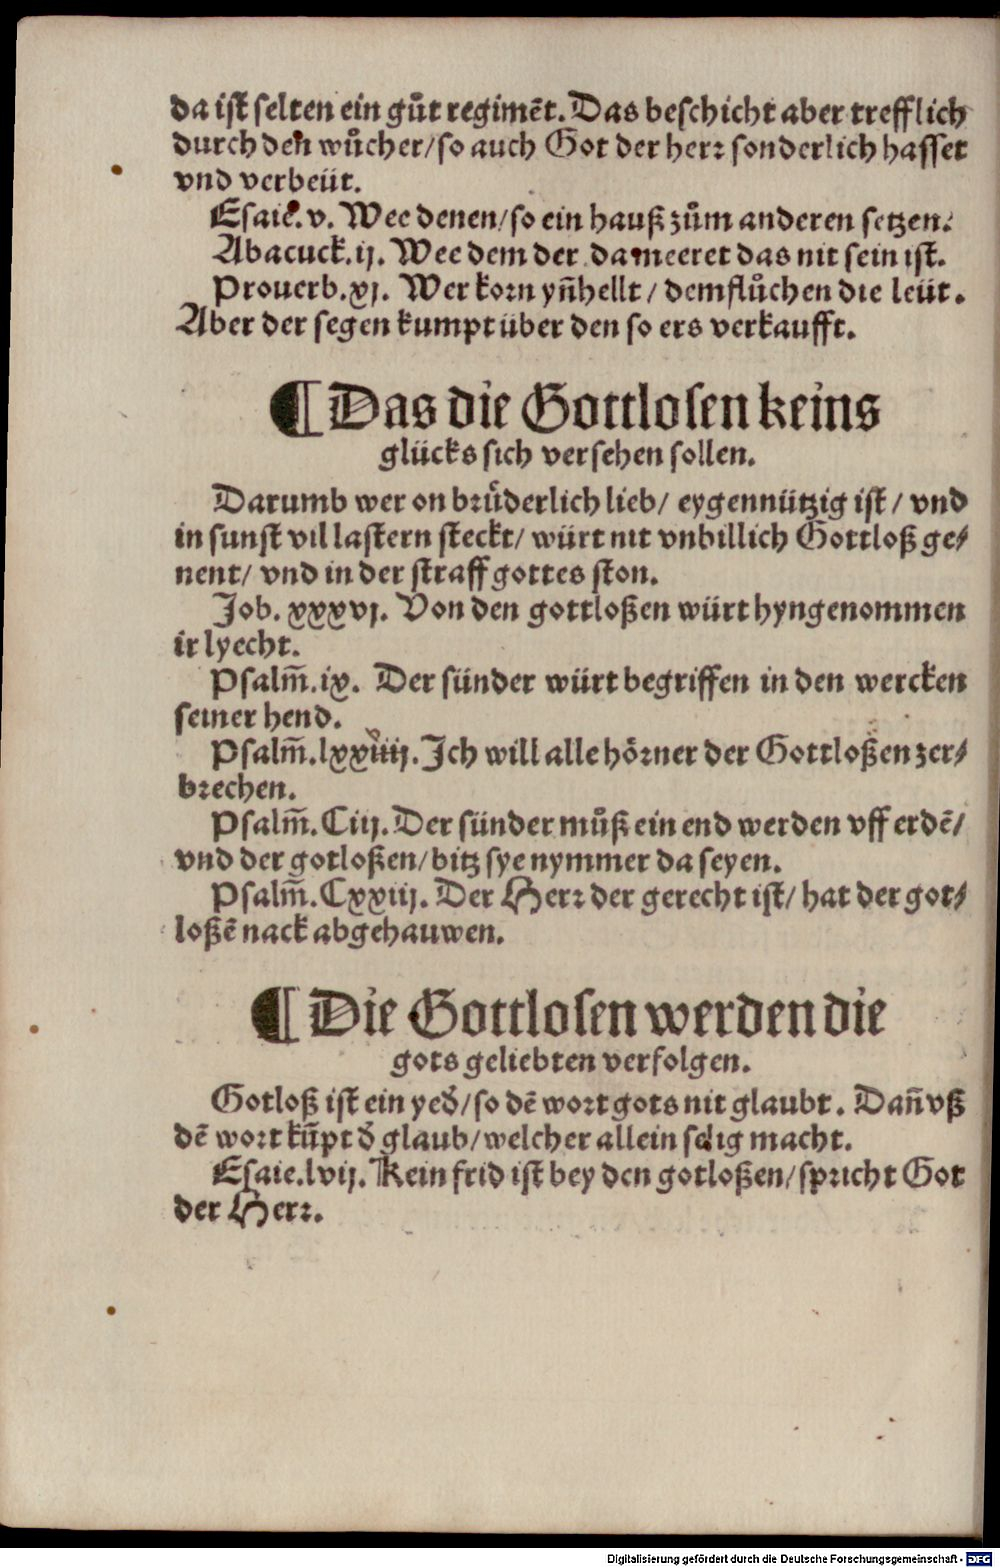 da ist selten ein gůt regimēt. Das beschicht aber trefflich
durch den wůcher/ so auch Got der herꝛ sonderlich hasset
vnd verbeüt.
Esaie. v. Wee denen/ so ein hauß zům anderen setzen.
Abacuck. ij. Wee dem der da meeret das nit sein ist.
Prouerb. xj. Wer korn yñhellt / dem flůchen die leüt.
Aber der segen kumpt über den so ers verkaufft.
¶ Das die Gottlosen keins
glücks sich versehen sollen.
Darumb wer on brůderlich lieb/ eygennützig ist / vnd
in sunst vil lastern steckt/ würt nit vnbillich Gottloß ge/
nent/ vnd in der straff gottes ston.
Job. xxxvj. Von den gottloßen würt hyngenommen
ir lyecht.
Psalm̄. ix. Der sünder würt begriffen in den wercken
seiner hend.
Psalm̄. lxxiiij. Ich will alle hörner der Gottloßen zer/
brechen.
Psalm̄. Ciij. Der sünder můß ein end werden vff erdē/
vnd der gotloßen/ bitz sye nymmer da seyen.
Psalm̄. Cxxiij. Der Herꝛ der gerecht ist/ hat der got/
loßē nack abgehauwen.
¶ Die Gottlosen werden die
gots geliebten verfolgen.
Gotloß ist ein yed̛/ so dē wort gots nit glaubt. Dañ vß
dē wort kūpt d̛ glaub/ welcher allein selig macht.
Esaie. lvij. Kein frid ist bey den gotloßen/ spricht Got
der Herꝛ.
Digitalisierung gefördert durch die Deutsche Forschungsgemeinschaft - DFG